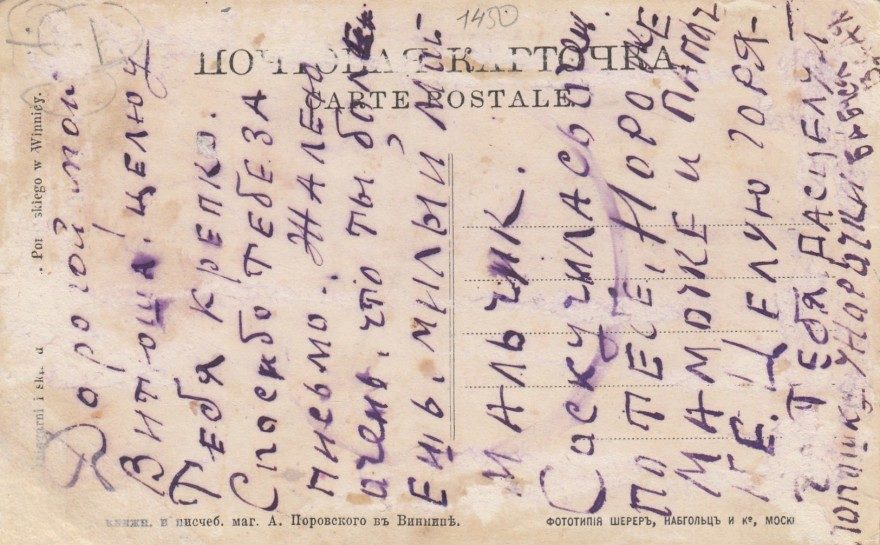 1450
ПОЧТОВАЯ КАРТОЧКА.
CARTE POSTALE
Дорогой мой
Витюша. Целую
тебя крепко.
Спасибо тебе за
письмо. Жалею
очень, что ты боле
ешь, милый ма-
льчик.
Соскучилась
по тебе,
мамочке и папоч
ке. Целую горя-
чо тебя
skiego w Winnicy.
книжн. и писчеб. маг. А. Поровского въ Винницѣ.
ФОТОТИПІЯ ШЕРЕРЪ, НАБГОЛЬЦЪ И Кº, МОСК